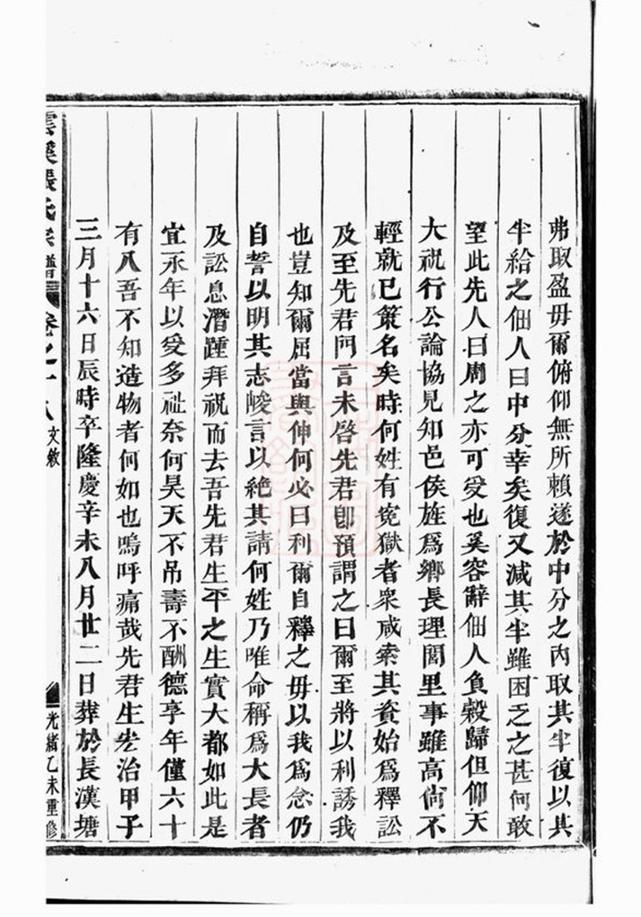 弗取盈毋爾俯仰無所賴遂於中分之內取其半復以其
半給之佃人曰中分幸矣復又減其半雖困乏之甚何敢
望此先人曰周之亦可受也奚容辭佃人負穀歸但仰天
大祝行公論協見知邑侯旌爲鄉長理閭里事雖高尙不
輕就已策名矣時何姓有寃獄者衆咸索其資始爲釋訟
及至先君門言未啓先君卽預謂之曰爾至將以利誘我
也豈知爾屈當與伸何必曰利爾自釋之毋以我爲念仍
自誓以明其志峻言以絶其請何姓乃唯命稱爲大長者
及訟息潛踵拜祝而去吾先君生平之生實大都如此是
宜永年以受多祉奈何昊天不吊壽不酬德享年僅六十
有八吾不知造物者何如也嗚呼痛哉先君生於治甲子
三月十六日辰時卒隆慶辛未八月廿二日葬於長漢塘
雲溪張氏宗譜 卷之十八 文敘
光緒乙未重修